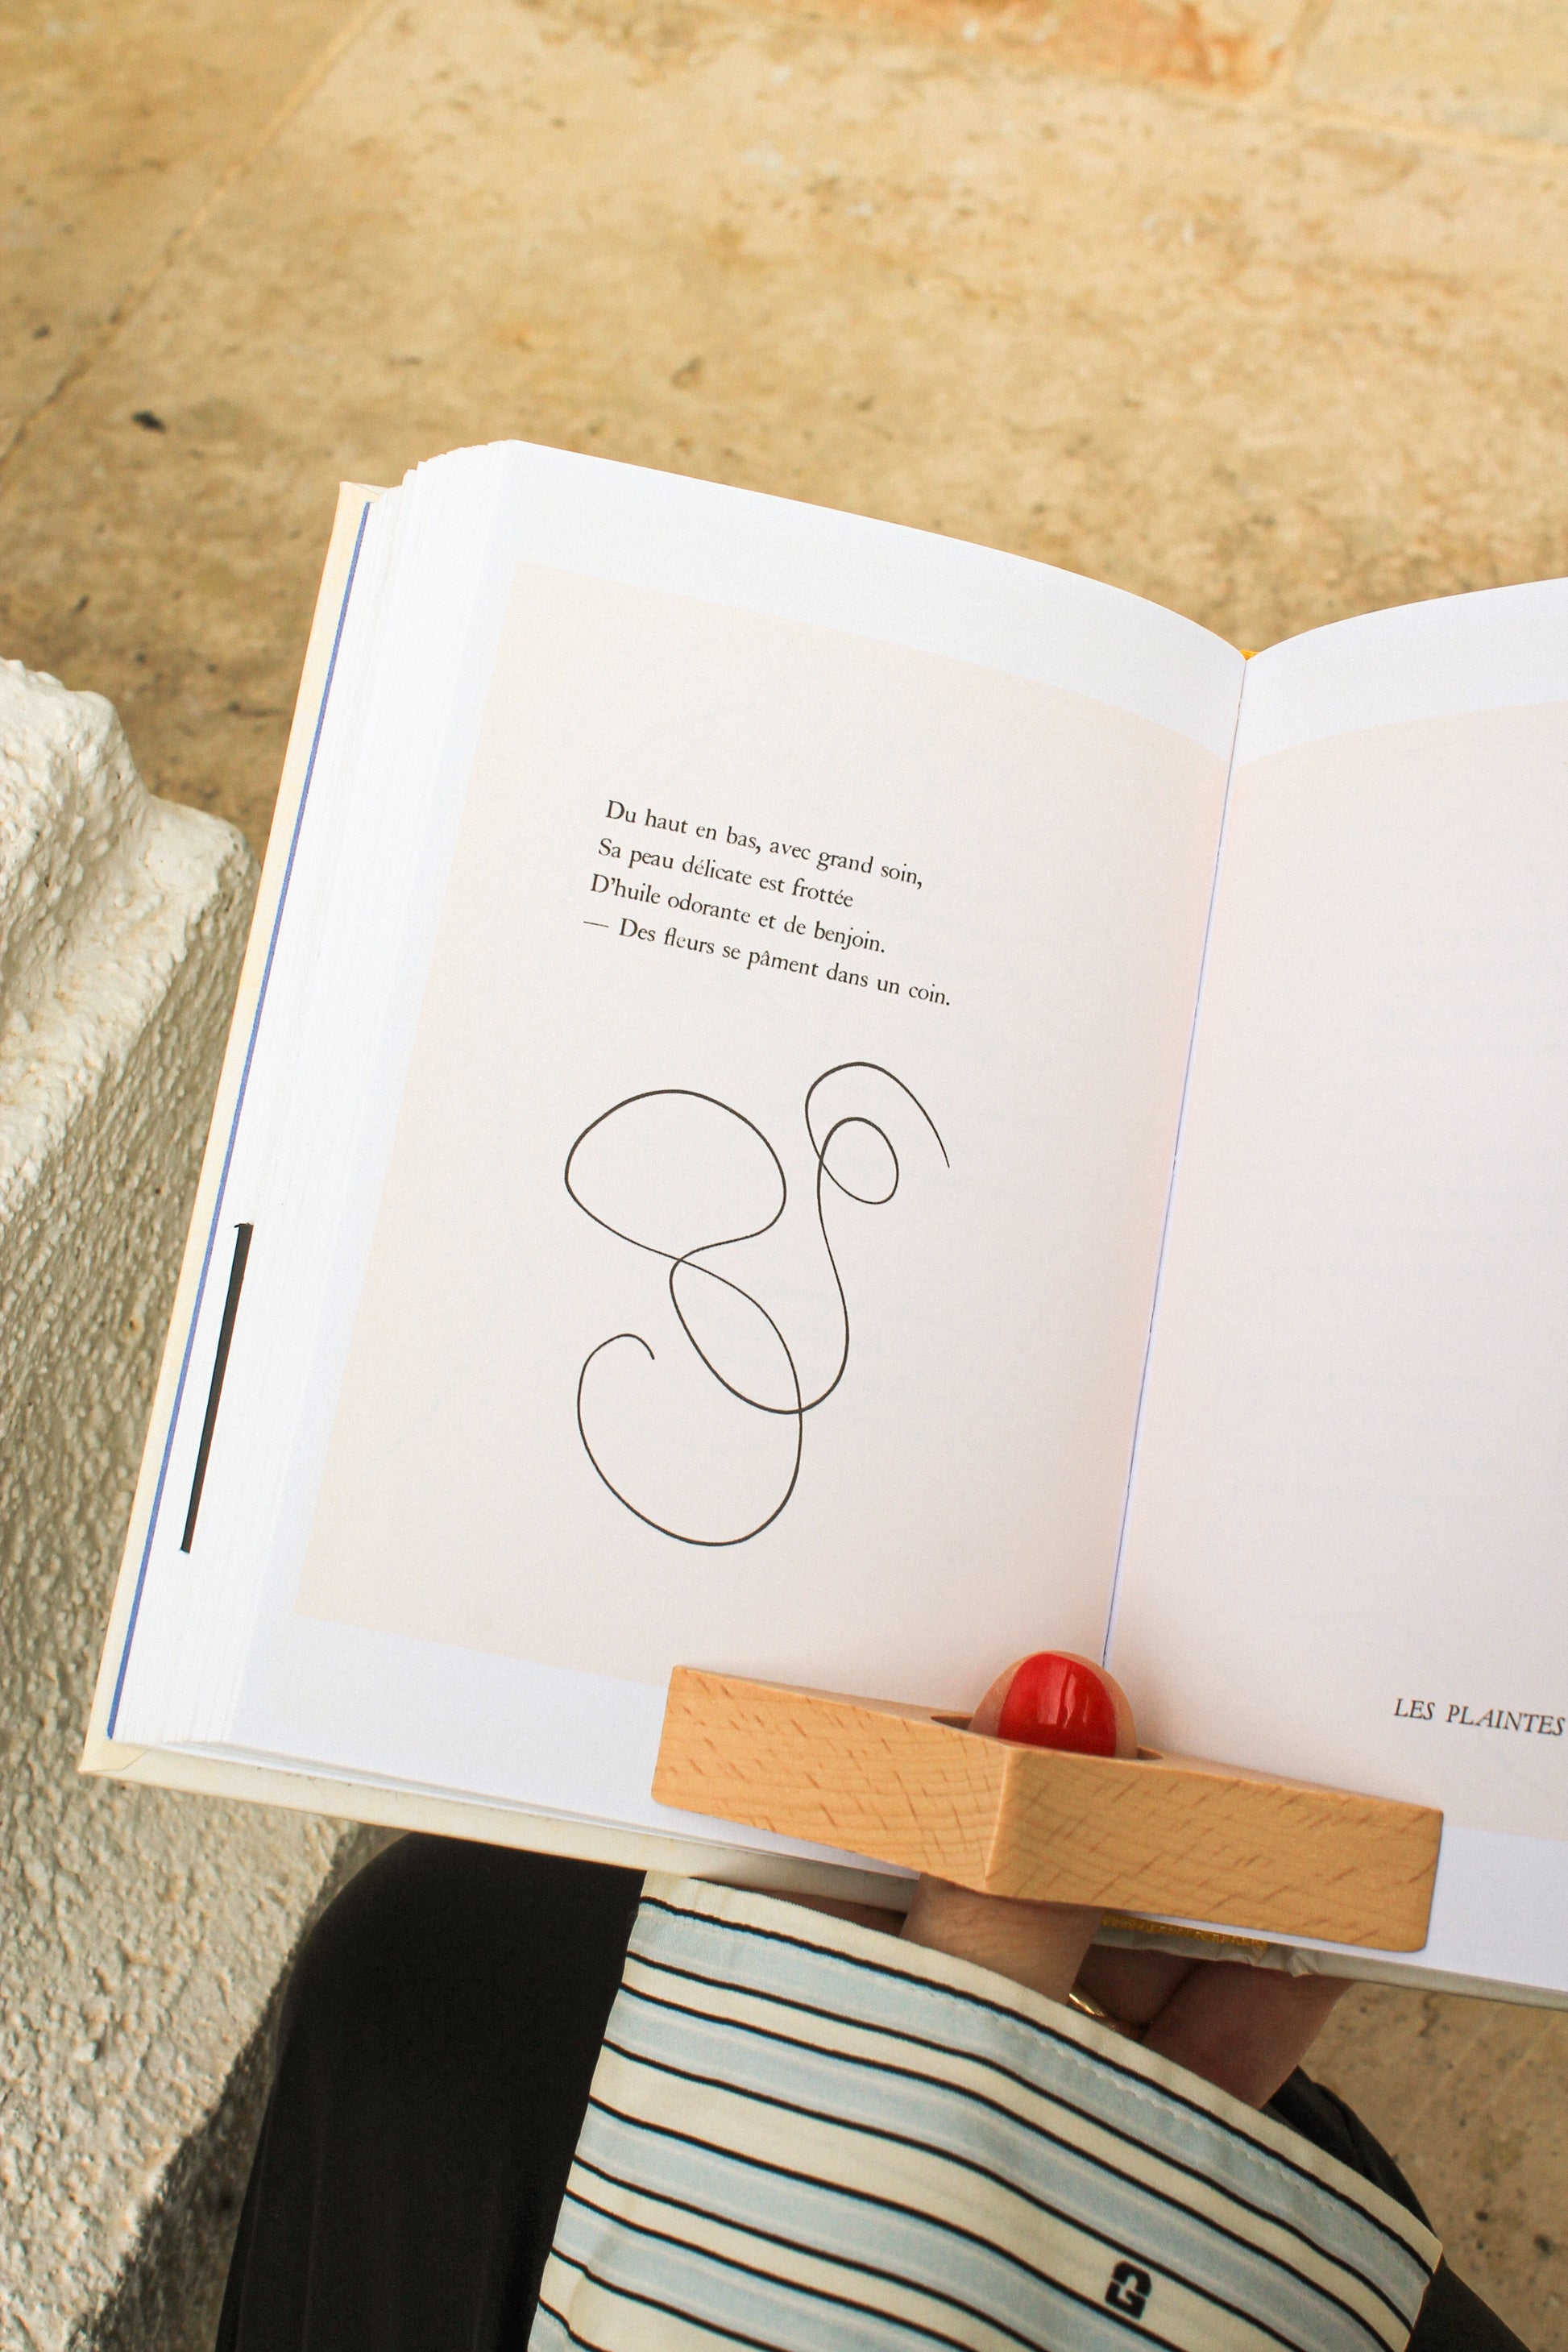 Du haut en bas, avec grand soin,
Sa peau délicate est frottée
D’huile odorante et de benjoin.
— Des fleurs se pâment dans un coin.
LES PLAINTES